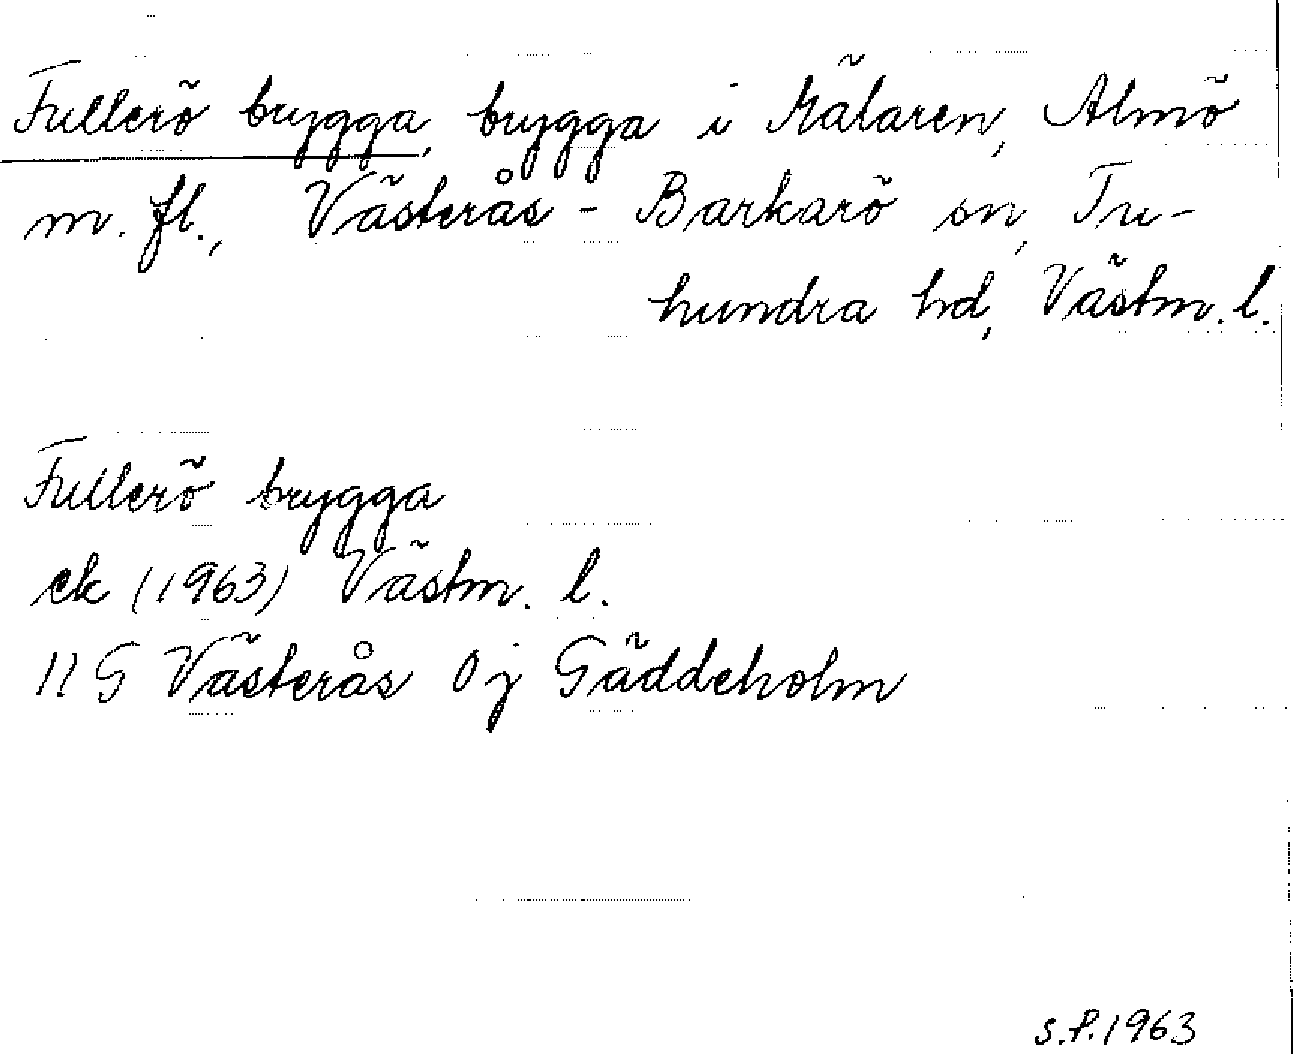 Fullerö brygga, brygga i Mälaren, Almö
m. fl., Västerås - Barkarö sn, Tu-
hundra hd, Västm. l.
Fullerö brygga
ek (1963) Västm. l.
11 G Västerås 0 j Gäddeholm
S.P. 1963